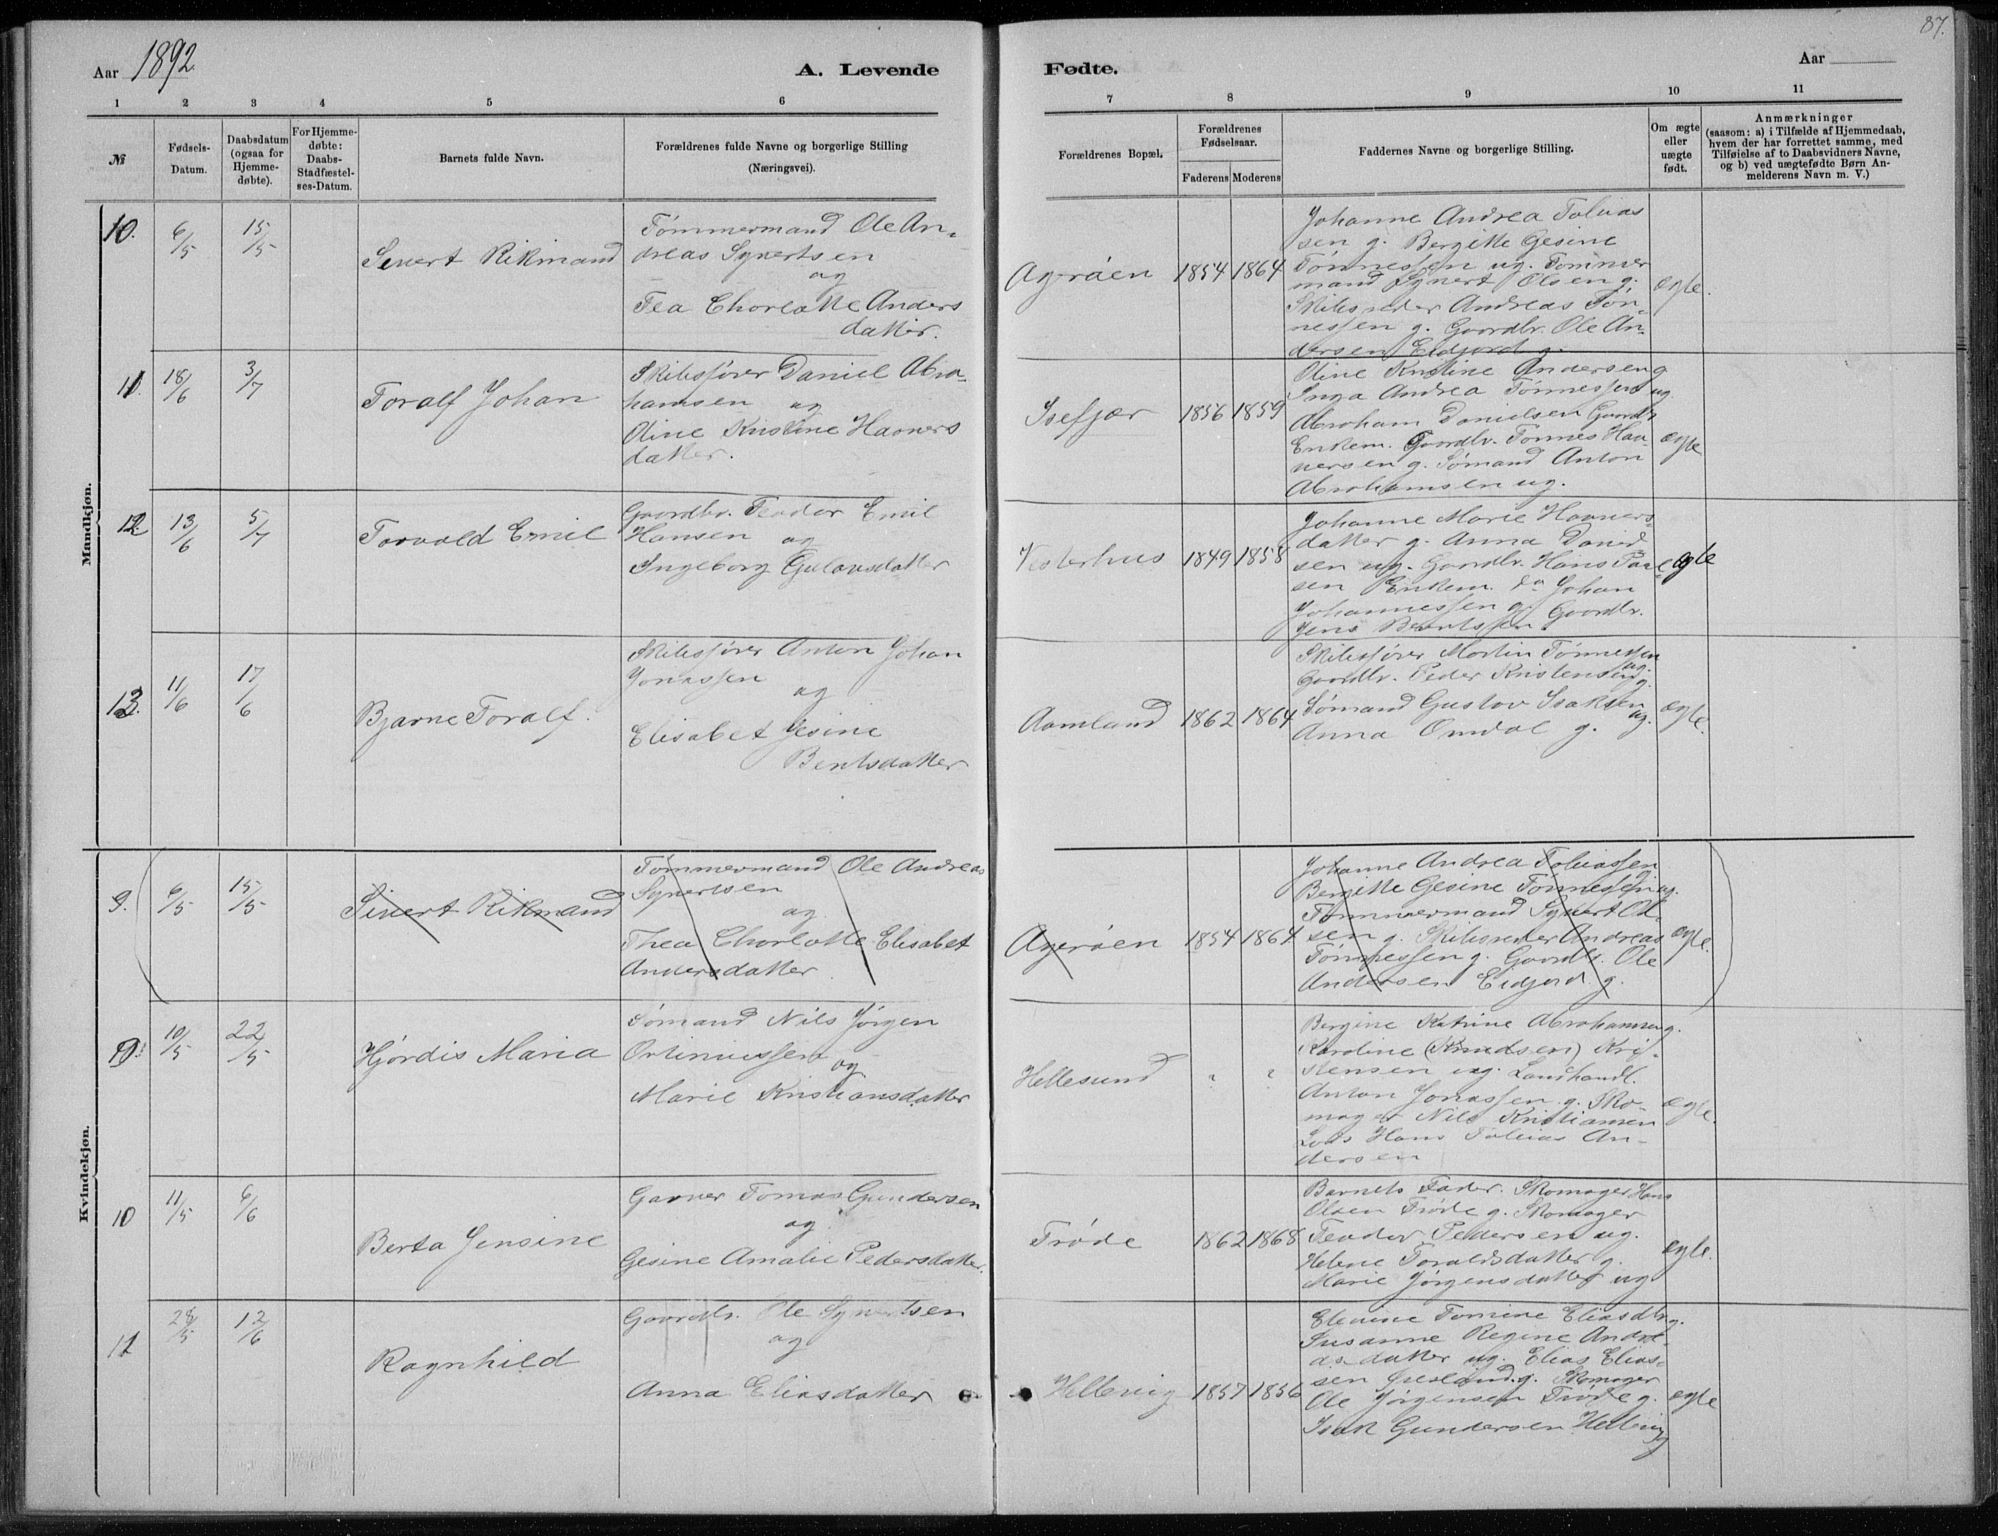 87.
Aar 1892.
A. Levende
Fødte.
Aar
1
2
3
4
5
6
7
8
9
10
11
№
Fødsels-
Datum.
Daabsdatum
(ogsaa for
Hjemme-
døbte).
For Hjemme-
døbte:
Daabs-
Stadfæstel-
ses-Datum.
Barnets fulde Navn.
Forældrenes fulde Navne og borgerlige Stilling
(Næringsvei).
Forældrenes Bopæl.
Forældrenes
Fødselsaar.
Faderens
Moderens
Faddernes Navne og borgerlige Stilling.
Om ægte
eller
uægte
født.
Anmærkninger
(saasom: a) i Tilfælde af Hjemmedaab,
hvem der har forrettet samme, med
Tilføielse af to Daabsvidners Navne,
og b) ved uægtefødte Børn An-
melderens Navn m. V.)
Mandkjøn.
10.
6/5
15/5
Sivert Rikmand
Tømmermand Ole An-
dreas Syvertsen
og
Tea Chorlotte Anders
datter.
Agerøen
1854
1864
Johanne Andrea Tobias
sen g. Bergitte Gesine
Tønnessen ug. Tømmer
mand Syvert Olsen g.
Skibsreder Andreas Tøn-
nessen g. Gaardbr. Ole An-
dersen Eidjord g.
ægte.
11.
18/6
3/7
Toralf Johan
Skibsfører Daniel Abra-
hamsen og
Oline Kristine Havners
datter.
Isefjær
1856
1859
Oline Kristine Andersen g
Inga Andrea Tønnessen ug
Abraham Danielsen Gaardbr
Enkem. Gaardbr. Tønnes Hav-
nersen g. Sømand Anton
Abrahamsen ug.
ægte
12.
13/6
5/7
Torvald Emil
Gaardbr. Teodor Emil
Hansen og
Ingeborg Gulovsdatter
Vesterhus
1849
1858
Johanne Marie Havners-
datter g. Anna Daniel
sen ug. Gaardbr. Hans Paul
sen Enkem. do Johan
Johannessen g. Gaardbr.
Jens Berntssen.
ægte
13.
11/6
17/6
Bjarne Toralf.
Skibsfører Anton Johan
Jonassen
og
Elisabet Jesine
Bentsdatter
Aamland
1862
1864
Skibsfører Martin Tønnessen
ug.
Gaardbr. Peder Kristensen g.
Sømand Gustav Isaksen
ug.
Anna Omdal g.
ægte.
Kvindekjøn.
9.
6/5
15/5
Sivert Rikmand
Tømmermand Ole Andreas
Syvertsen
og
Thea Chorlotte Elisabet
Andersdatter.
Agerøen
1854
1864
Johanne Andrea Tobiassen g
Bergitte Gesine Tønnessen ug.
Tømmermand Syvert Ol-
sen g. Skibsreder Andreas
Tønnessen g. Gaardbr. Ole
Andersen Eidjord g.
ægte.
9.
10/5
22/5
Hjørdis Maria
Sømand Nils Jørgen
Ortinussen
og
Marie Kristiansdatter
Hellesund
?
?
Bergine Katrine Abrahamsen g.
Karoline (Knudsen) Kri-
stensen ug. Landhandl.
Anton Jonassen g. Sko-
mager Nils Kristiansen
Lods Hans Tobias An-
dersen
ægte.
10
11/5
6/6
Berta Jensine
Garver Tomas Gundersen
og
Gesine Amalie Pedersdatter.
Trøde
1862
1868
Barnets Fader. Skomager Hans
Olsen Trøde g. Skomager
Teodor Pedersen ug.
Helene Toraldsdatter g.
Marie Jørgensdatter ug
ægte.
11
28/5
12/6
Ragnhild
Gaardbr. Ole Syvertsen
og
Anna Eliasdatter
Hellevig
1857
1856
Elevine Tomine Eliasdtr g.
Susanne Regine Andre
asdatter ug. Elias Elias-
sen g. Skomager
Ole Jørgensen Trøde g.
Isak Gundersen Hellevig
g
ægte